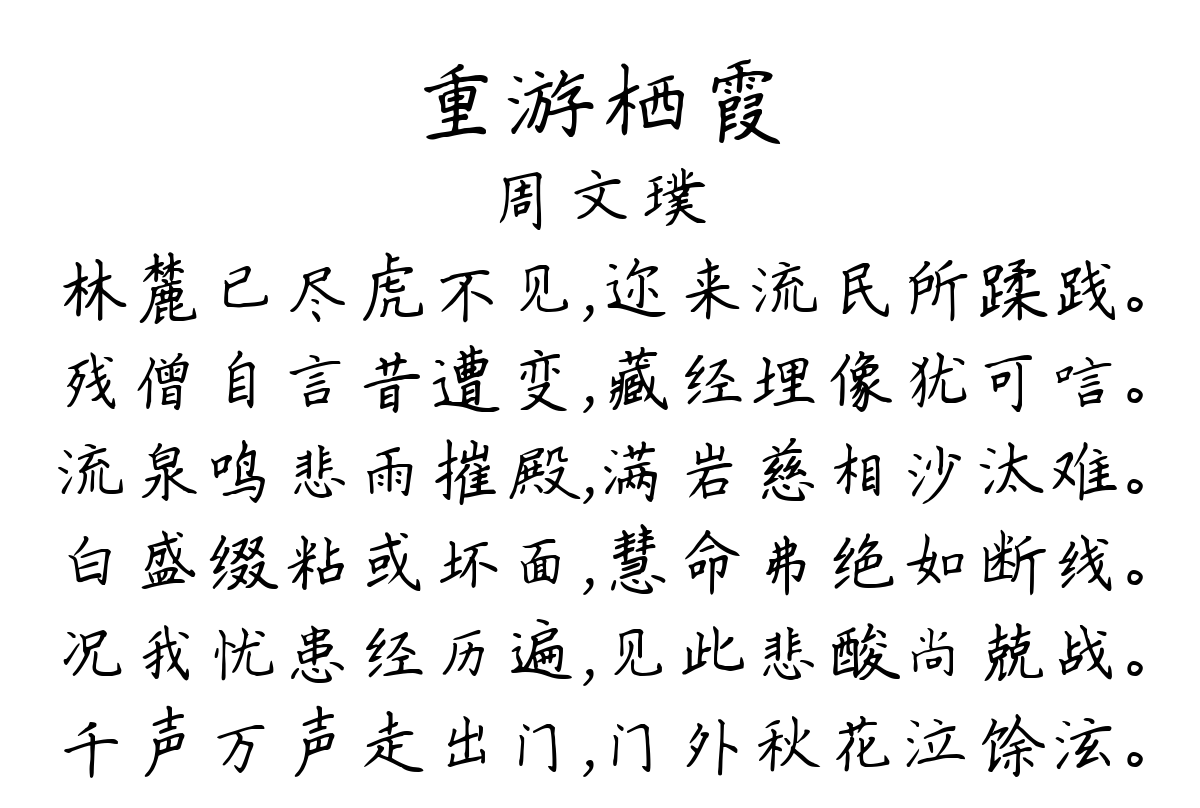 重游栖霞
周文璞
林麓已尽虎不见,迩来流民所蹂践。
残僧自言昔遭变,藏经埋像犹可唁。
流泉鸣悲雨摧殿,满岩慈相沙汰难。
白盛缀粘或坏面,慧命弗绝如断线。
况我忧患经历遍,见此悲酸尚兢战。
千声万声走出门,门外秋花泣馀泫。